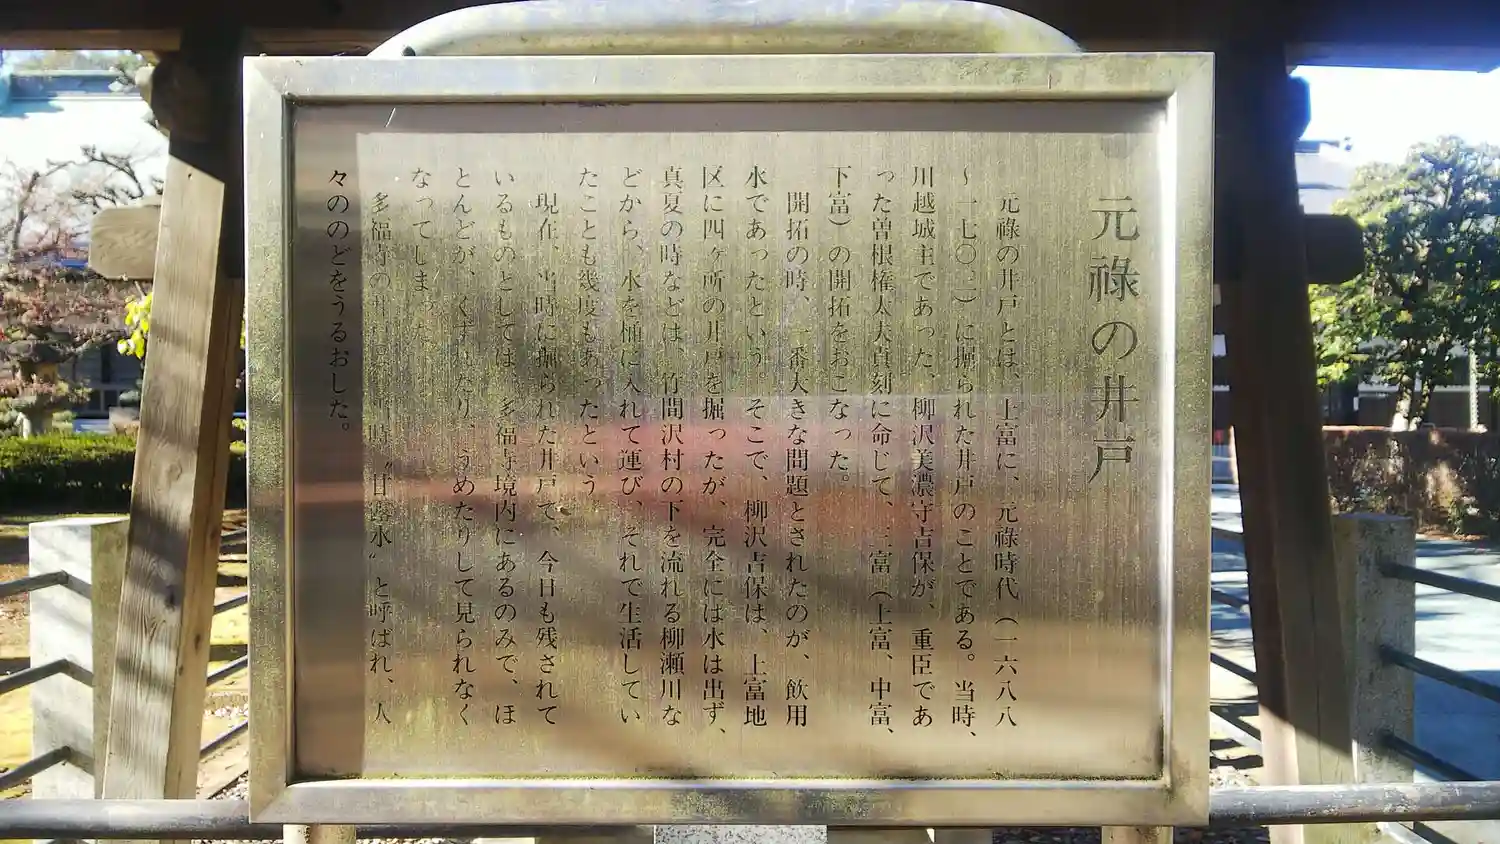 元祿の井戸
元祿の井戸とは、上富に、元祿時代(一六八八
~一七〇三)に掘られた井戸のことである。当時、
川越城主であった、柳沢美濃守吉保が、重臣であ
った曽根権太夫貞刻に命じて、三富(上富、中富、
下富)の開拓をおこなった。
開拓の時、一番大きな問題とされたのが、飲用
水であったという。そこで、柳沢吉保は、上富地
区に四ヶ所の井戸を掘ったが、完全には水は出ず、
真夏の時などは、竹間沢村の下を流れる柳瀬川な
どから、水を桶に入れて運び、それで生活してい
たことも幾度もあったという
現在、当時に掘られた井戸で、今日も残されて
いるものとしては、多福寺境内にあるのみで、ほ
とんどが、くずれたり、うめたりして見られなく
なってしまった
多福寺の井戸は 時〝甘露水〟と呼ばれ、人
々ののどをうるおした。